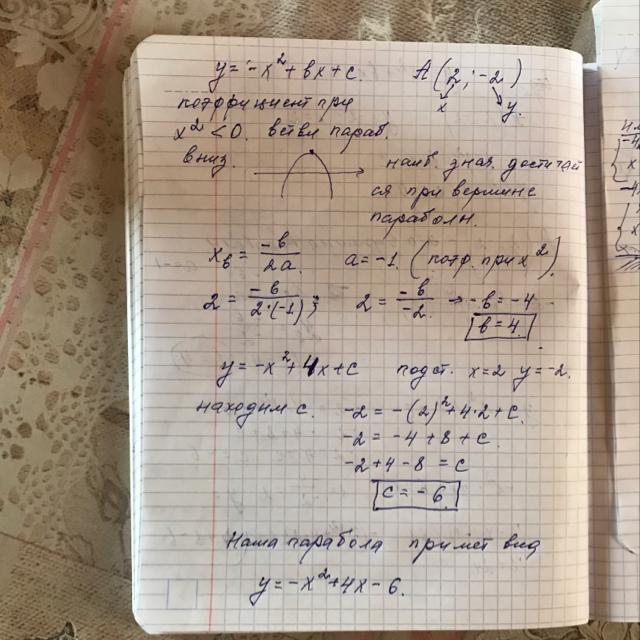 y = -x² + bx + c.   A(2; -2)
x   y.
коэффициент при
x² < 0. ветви параб.
вниз.
наиб. знач. достигает
ся при вершине
параболы.
x_в = -b/2a   a = -1. (коэф. при x²)
2 = -b/2·(-1);   2 = -b/-2. → -b = -4
b = 4.
y = -x² + 4x + c   подст. x = 2 y = -2.
находим c.   -2 = -(2)² + 4·2 + c.
-2 = -4 + 8 + c.
-2 + 4 - 8 = c
c = -6.
Наша парабола примет вид
y = -x² + 4x - 6.